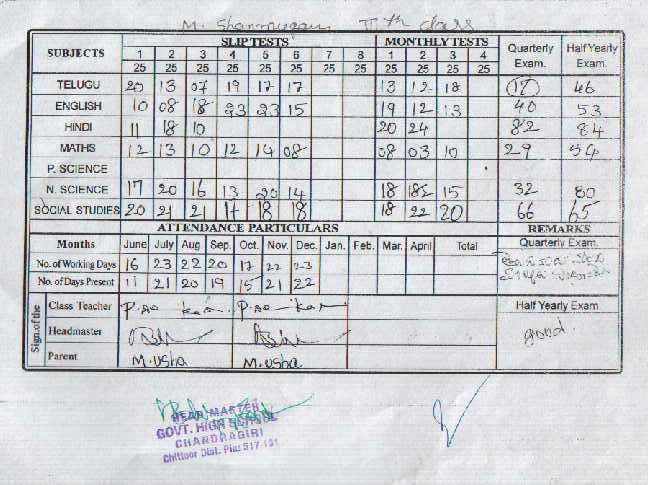 M. Shanmugam
class
SUBJECTS SLIP TESTS MONTHLY TESTS Quarterly Exam. Half Yearly Exam.
1 2 3 4 5 6 7 8 1 2 3 4
25 25 25 25 25 25 25 25 25 25 25 25
TELUGU 20 13 07 19 17 17 13 12 18 46
ENGLISH 10 08 18 23 23 15 19 12 13 40 53
HINDI 11 18 10 20 24 82 84
MATHS 12 13 10 12 14 08 08 03 10 29 54
P. SCIENCE
N. SCIENCE 17 20 16 13 20 14 18 15 32 80
SOCIAL STUDIES 20 21 21 17 18 18 18 22 20 66 65
ATTENDANCE PARTICULARS REMARKS
Months June July Aug Sep. Oct. Nov. Dec. Jan. Feb. Mar. April Total Quarterly Exam.
No. of Working Days 16 23 22 20 17 22 23
No. of Days Present 11 21 20 19 15 21 22
Sign.of the
Class Teacher Half Yearly Exam
Headmaster good.
Parent M.Usha M.Usha
HEAD MASTER
GOVT. HIGH SCHOOL
CHANDRAGIRI
Chittoor Dist. Pin: 517 101